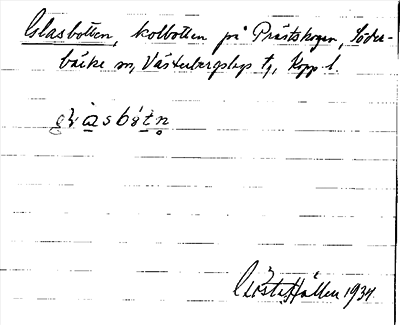 Glasbotten, kolbotten på Prästskogen, Söder-
bärke sn, Västerbergslags tg, Kopp. l.
glàsbòtn
Gösta Hållen 1934